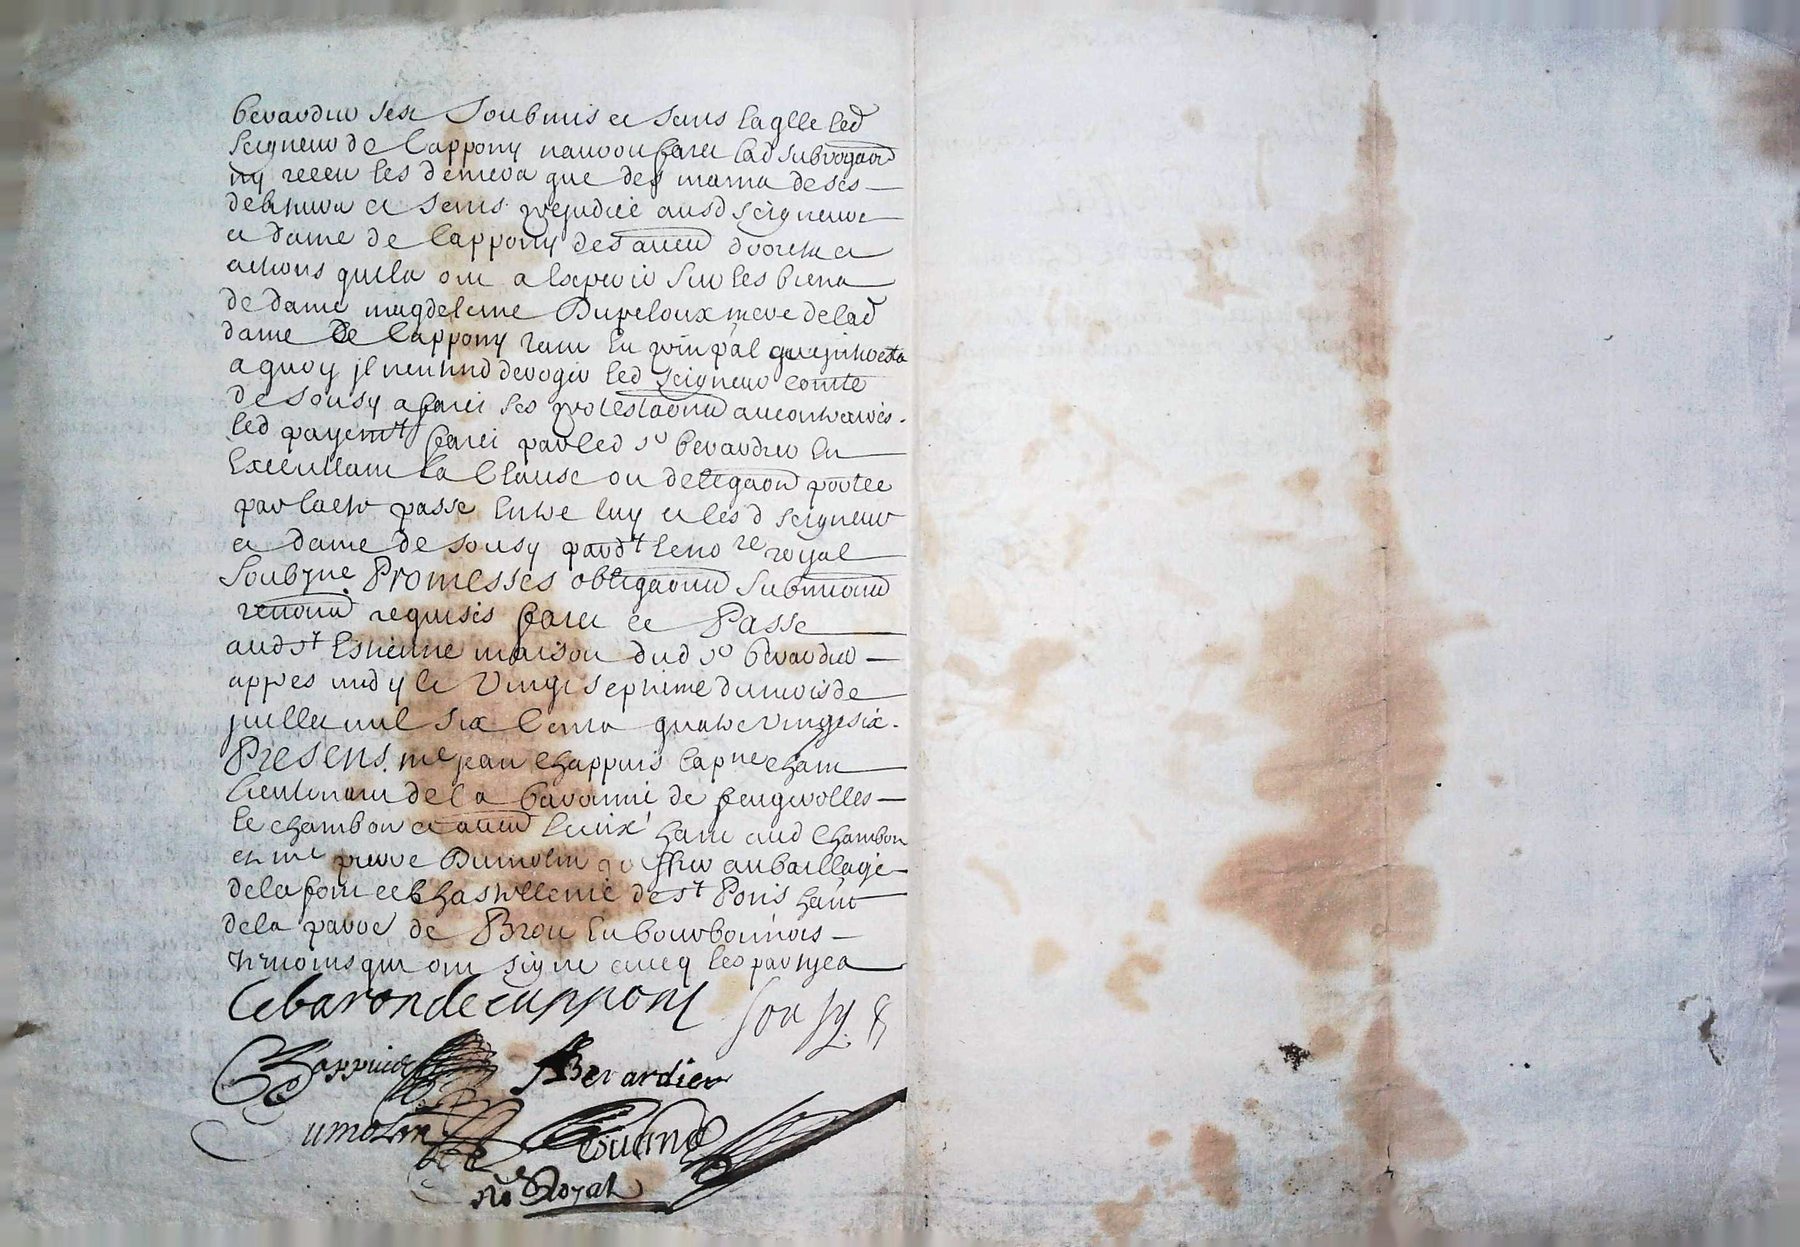 berardier sest soubmis et sans laqlle led
seigneur de Cappony nauroit faict lad subrogaon
ny receu les deniers que des mains de ses
debiteurs et sans prejudice ausd seigneur
et dame de Cappony des autres droicts et
actions quils ont a lexercer sur les biens
de dame magdeleine Dupeloux mere de lad
dame de Cappony tant en prinpal quinterests
a quoy il nentend deroger led seigneur comte
de sousy a faict ses protestaons au contraires.
led payemt faict par led sr berardier en
executtant la Clause ou delegaon portee
par lacte passe entre luy et lesd seigneur
et dame de sousy pardt le no re royal
soubzne. Promesses obligaons submions
renons requises faict et Passe
aud st Estienne maison dud sr berardier
appres midy le vingt septieme du mois de
juillet mil six Cents quatre vingt six.
Presens. me jean Chappuis cap ne chatt
lieutenant de la baronnie de feugerolles
le chambon et autres lieux hant aud Chambon
et me pierre Dumolin greffier au baillage
de la font et Chastellenie de st Pons hant
de la paroe de Brou en bourbonnois
tesmoins qui ont signe avecq les partyes
Lebarondecappony sousy
Chappuis Berardier
Dumolin
no Royal